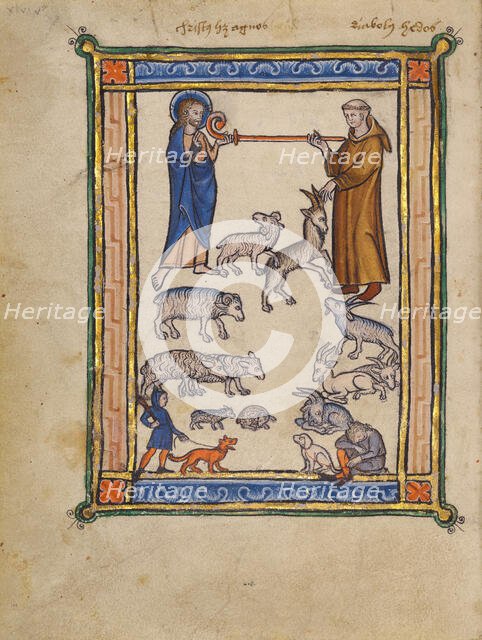 christus hz agnos diabolus hedos
Heritage Heritage
Heritage Heritage Heritage
Heritage Heritage